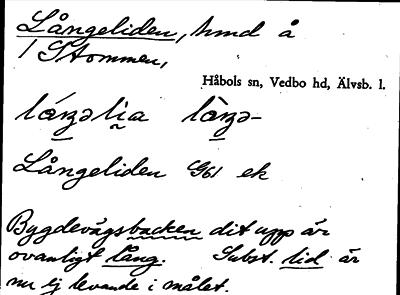 Långeliden, hmd å
1 Stommen,
Håbols sn, Vedbo hd, Älvsb. l.
Långeliden G61 ek
Bygdevägsbacken dit upp är
ovanligt lång. Subst. lid är
nu ej levande i målet.